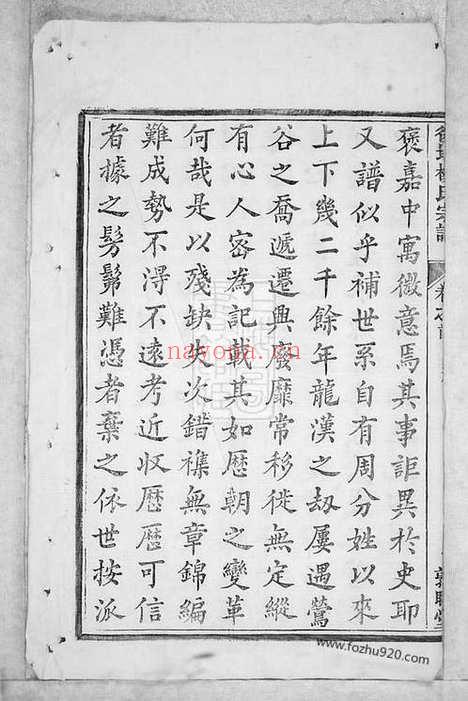 褒嘉中寓微意焉其事詎異於史耶
又譜似乎補世系自有周分姓以來
上下幾二千餘年龍漢之劫屢遇鶯
谷之喬遞遷興廢靡常移徙無定縱
有心人密為記載其如歷朝之變革
何哉是以殘缺失次錯襍無章錦編
難成勢不淂不遠考近收歷歷可信
者據之髣髴難憑者棄之依世按派
氏宗譜
卷之首
nayona.cn
www.fozhu920.com